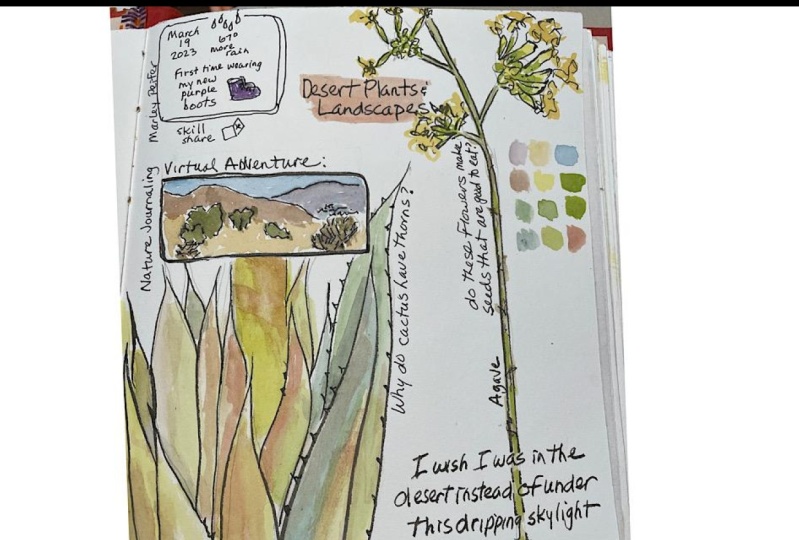 March
19
2023
67°
more
rain
First time wearing
my new
purple
boots
skill
share
Marley Peifer
Nature Journaling
Virtual Adventure:
Desert Plants &
Landscapes
Why do cactus have thorns?
do these flowers make
seeds that are good to eat?
Agave
I wish I was in the
desert instead of under
this dripping skylight